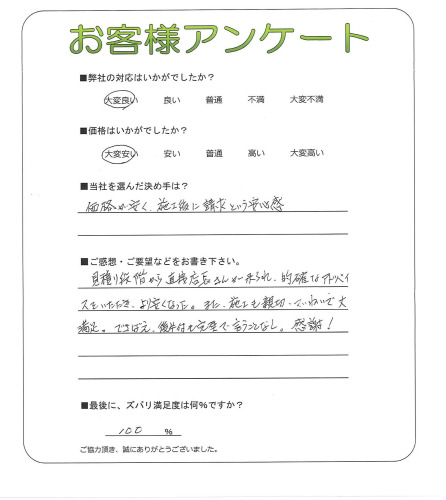 お客様アンケート
■弊社の対応はいかがでしたか?
大変良い 良い 普通 不満 大変不満
■価格はいかがでしたか?
大変安い 安い 普通 高い 大変高い
■当社を選んだ決め手は?
価格が安く、施工後に請求という安心感
■ご感想・ご要望などをお書き下さい。
見積り段階から直接店長さんが来られ、的確なアドバイ
スをいただき、より安くなった。また、施工も親切、ていねいで大
満足。できばえ、後片付も完璧で言うことなし。感謝!
■最後に、ズバリ満足度は何%ですか?
100 %
ご協力頂き、誠にありがとうございました。